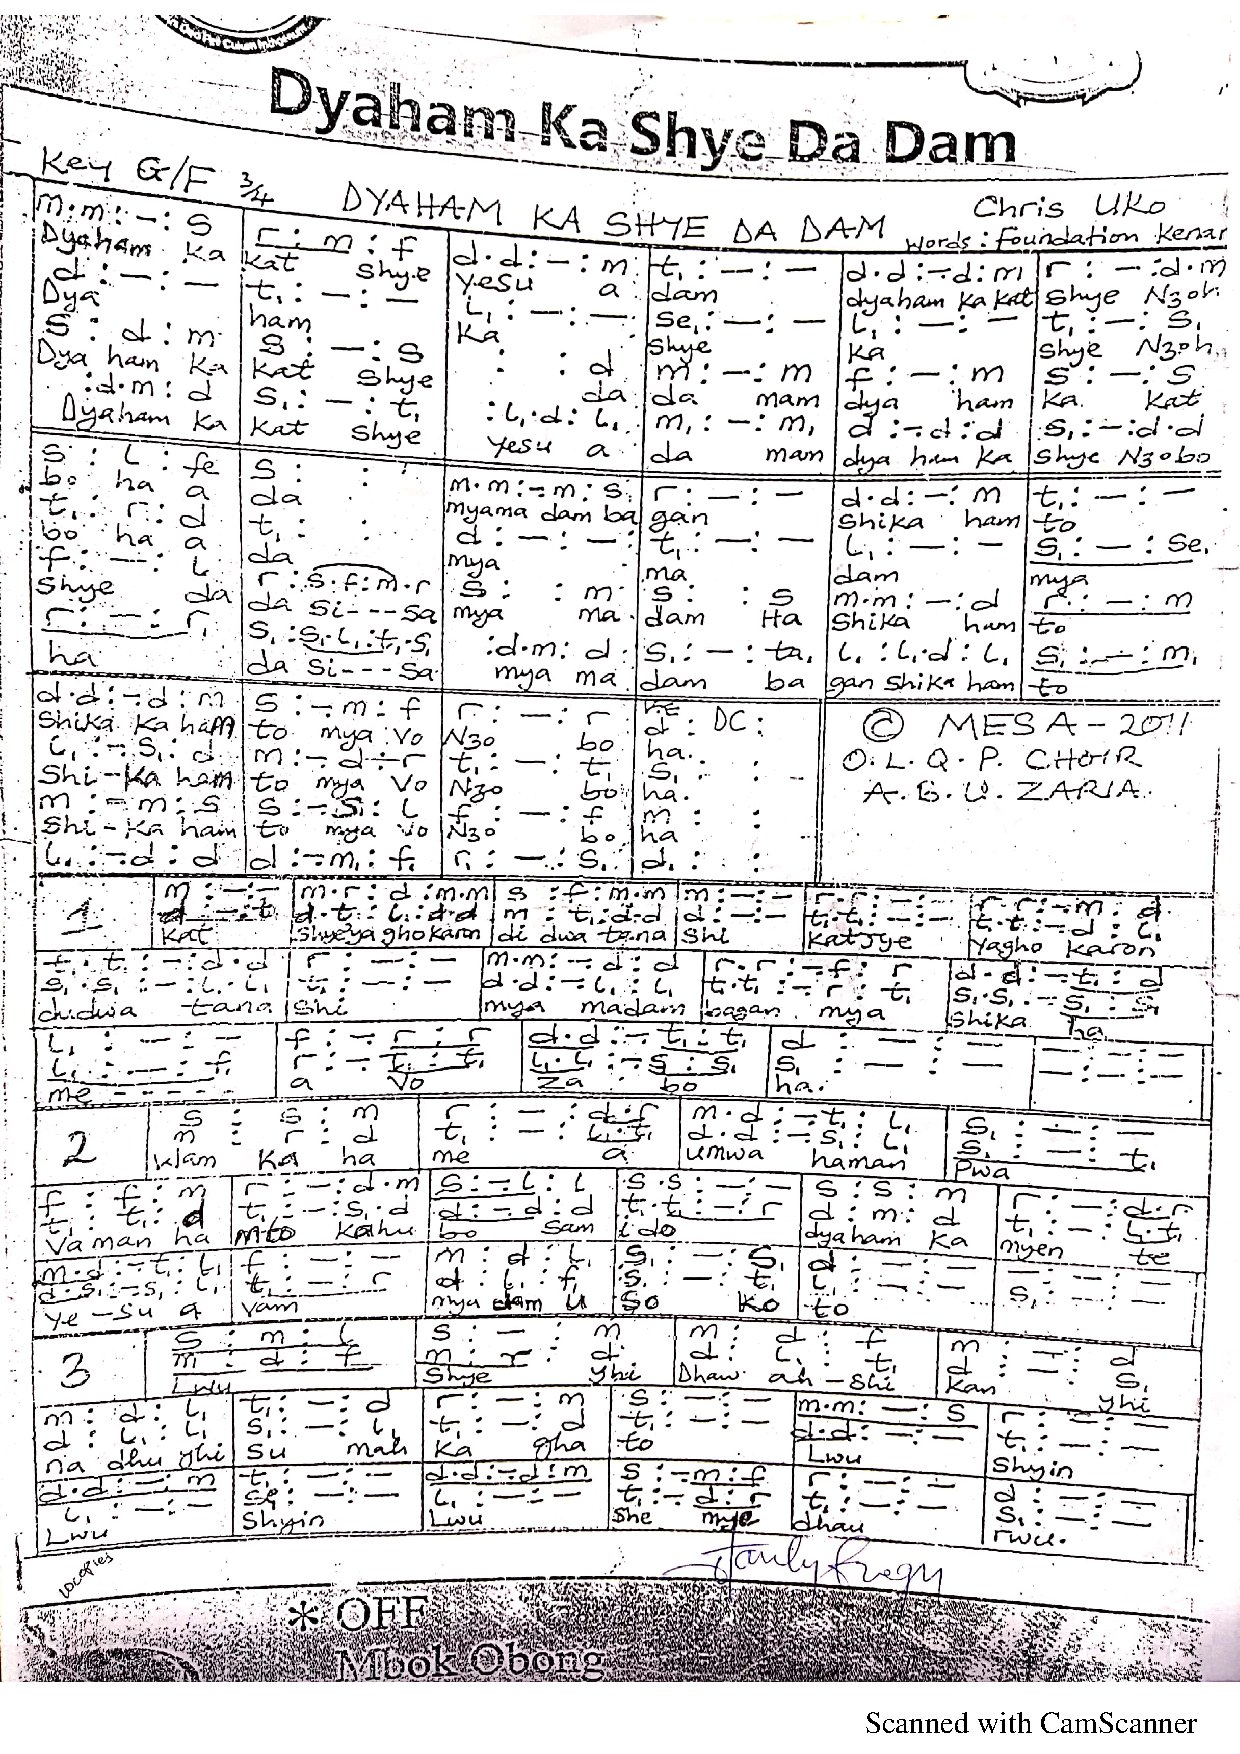 Dyaham Ka Shye Da Dam
Key G/F 3/4 DYAHAM KA SHYE DA DAM Chris Uko
Words: Foundation Kenar
m·m : – : s | r : m : f | d·d : – : m | t, : – : – | d·d : – d : m | r : – : d·m
Dyaham ka | kat shye | yesu a | dam | dyaham ka kat | shye Nzok
d : – : – | t, : – : – | l, : – : – | se, : – : – | l, : – : – | t, : – : s,
Dya | ham | ka | shye | ka | shye Nzoh
s : d : m | s : – : s | : : d | m : – : m | f : – : m | s : – : s
Dya ham ka | kat shye | da | da mam | dya ham | ka kat
: d·m : d | s, : – : t, | : l,·d : l, | m, : – : m, | d : – d : d | s, : – : d·d
Dyaham ka | kat shye | yesu a | da mam | dya ham ka | shye Nzobo
s : l : fe | s : : | m·m : – m : s | r : – : – | d·d : – : m | t, : – : –
bo ha a | da | myama dam ba | gan | shika ham | to
t, : r : d | t, : : | d : – : – | t, : – : – | l, : – : – | s, : – : se,
bo ha a | da | mya | ma | dam | mya
f : – : l | r : s·f : m·r | s : : m | s : : s | m·m : – : d | r : – : m
shye da | da si---sa | mya ma | dam Ha | shika ham | to
r : – : r, | s, : s,·l, : t,·s, | : d·m : d | s, : – : ta, | l, : l,·d : l, | s, : – : m,
ha | da si---sa | mya ma | dam ba | gan shika ham | to
d·d : – d : m | s : – m : f | r : – : r | d : DC :
shika ka ham | to mya vo | Nzo bo | ha.
l, : – s, : d | m : – d : r | t, : – : t, | s, : :
shi-ka ham | to mya vo | Nzo bo | ha.
m : – m : s | s : – s : l | f : – : f | m : :
shi-ka ham | to mya vo | Nzo bo | ha
l, : – d : d | d : – m, : f, | r, : – : s, | d, : :
© MESA-2011
O.L.Q.P. CHOIR
A.B.U. ZARIA.
1 | m : – : – | m·r : d : m·m | s : f : m·m | m : – : – | r·r : – : – | r·r : – m : d
d·t, : l, : d·d | m : t, : d·d | d : – : – | t,·t, : – : – | t,·t, : – d : l,
kat | shyeya gho karon | di dwa tana | shi | katsye | yagho karon
t,·t, : – : d·d | r : – : – | m·m : – d : d | r·r : – f : r | d·d : – t, : d
s,·s, : – : l,·l, | t, : – : – | d·d : – l, : l, | t,·t, : – r : t, | s,·s, : – s, : s,
didwa tana | shi | mya madam | bagan mya | shika ha
l, : – : – | f : – r : r | d·d : – t, : t, | d : – : – | – : – : –
l, : – : f, | r : – t, : t, | l,·l, : – s, : s, | s, : – : – | – : – : –
me - - - - - | a vo | za bo | ha.
2 | s : s : m | r : – : d·r | m·d : – t, : l, | s, : – : –
m : r : d | t, : – : l,·t, | d·d : – s, : l, | s, : – : t,
klam ka ha | me a | umwa haman | Pwa
f : f : m | r : – : d·m | s : – l : l | s·s : – : – | s : s : m | r : – : d·r
t, : t, : d | t, : – : s,·d | d : – d : d | t,·t, : – : r | d : m : d | t, : – : l,·t,
va man ha | mto kahu | bo sam | ido | dyaham ka | myen te
m·d : – t, : l, | f : – : – | m : d : l, | s, : – : s, | d : – : –
d·s, : – s, : l, | t, : – : r | d : l, : f, | s, : – : t, | l, : – : – | s, : – : –
ye-su a | vam | mya dam u | so ko | to
3 | s : m : l | s : – : m | m : d : f | m : – : d
m : d : f | m : r : d | d : l, : t, | d : – : s,
Lwu | shye yhi | Dhaw ah-shi | kan yhi
m : d : l, | t, : – : d | r : – : m | s : – : – | m·m : – : s | r : – : –
d : l, : l, | s, : – : l, | t, : – : d | t, : – : – | d·d : – : – | t, : – : –
na dhu yhi | su mah | ka gha | to | Lwu | shyin
d·d : – : m | t, : – : – | d·d : – d : m | s : – m : f | r : – : – | d : – : –
l, : – : – | se, : – : – | l, : – : – | t, : – d : r | t, : – : – | s, : – : –
Lwu | shyin | Lwu | she mye | dhau | rwu.
10copies
* OFF
Mbok Obong
Scanned with CamScanner